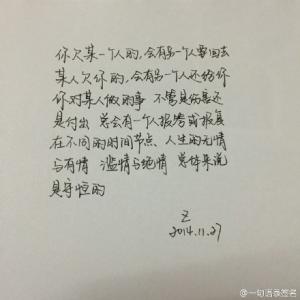 你欠某一个人的,会有另一个人要回去
某人欠你的,会有另一个人还给你
你对某人做的事 不管是伤害还
是付出 总会有一个人报答或报复
在不同的时间节点、人生的无情
与有情 滥情与绝情 总体来说
是守恒的
Z
2014.11.27
@一句语录签名